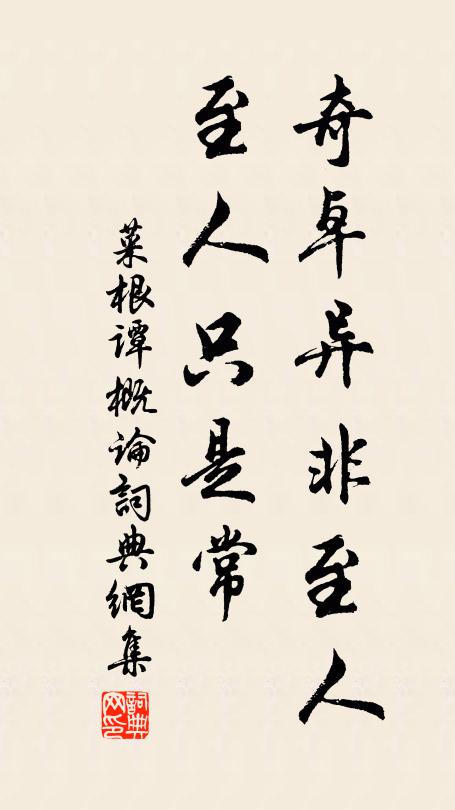 奇卓异非至人
至人只是常
菜根谭概論詞典網集
詞典网印